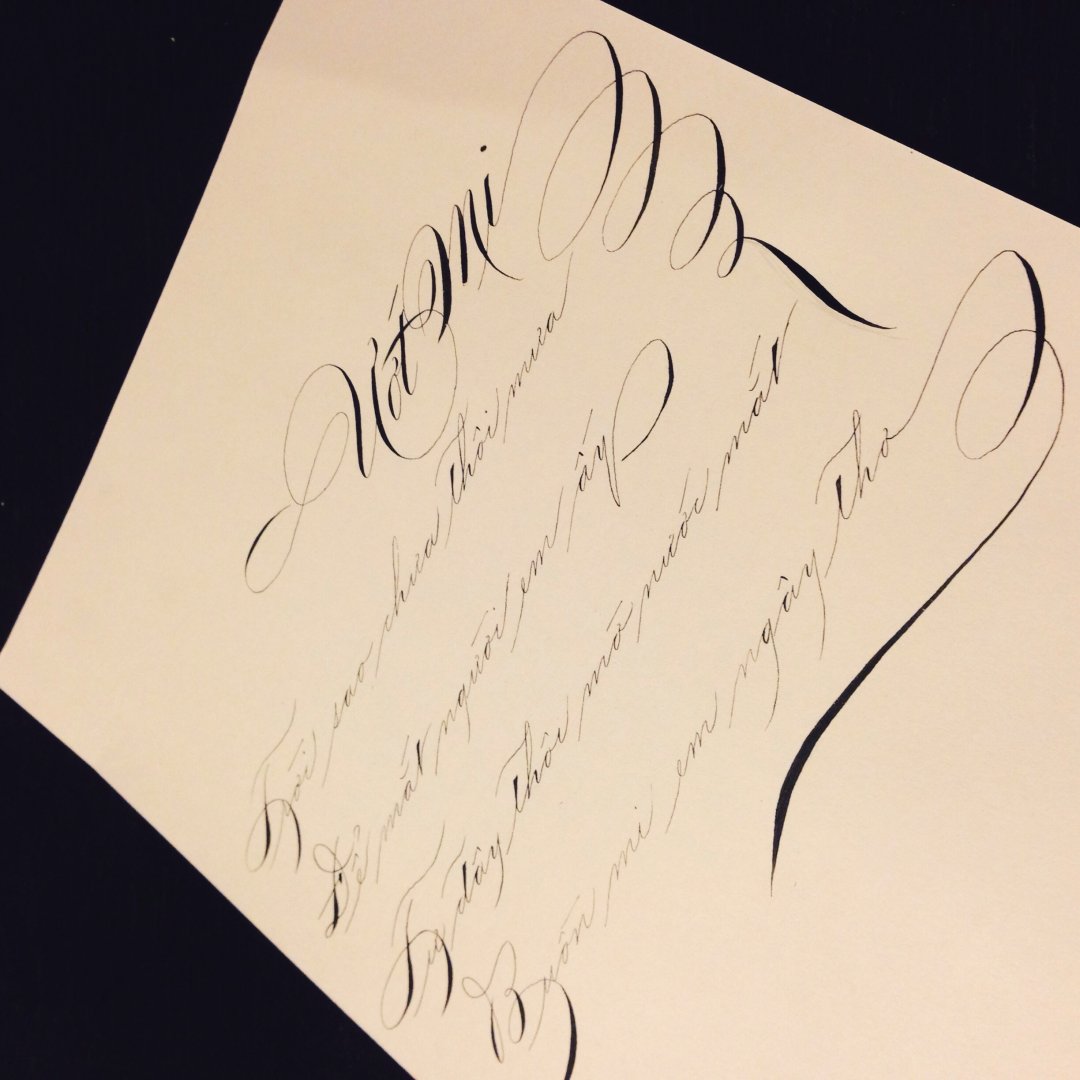 Ướt Mi
Trời sao chưa thôi mưa
Để mắt người em ấy
Từ đây thôi mờ nước mắt
Buồn mi em ngây thơ